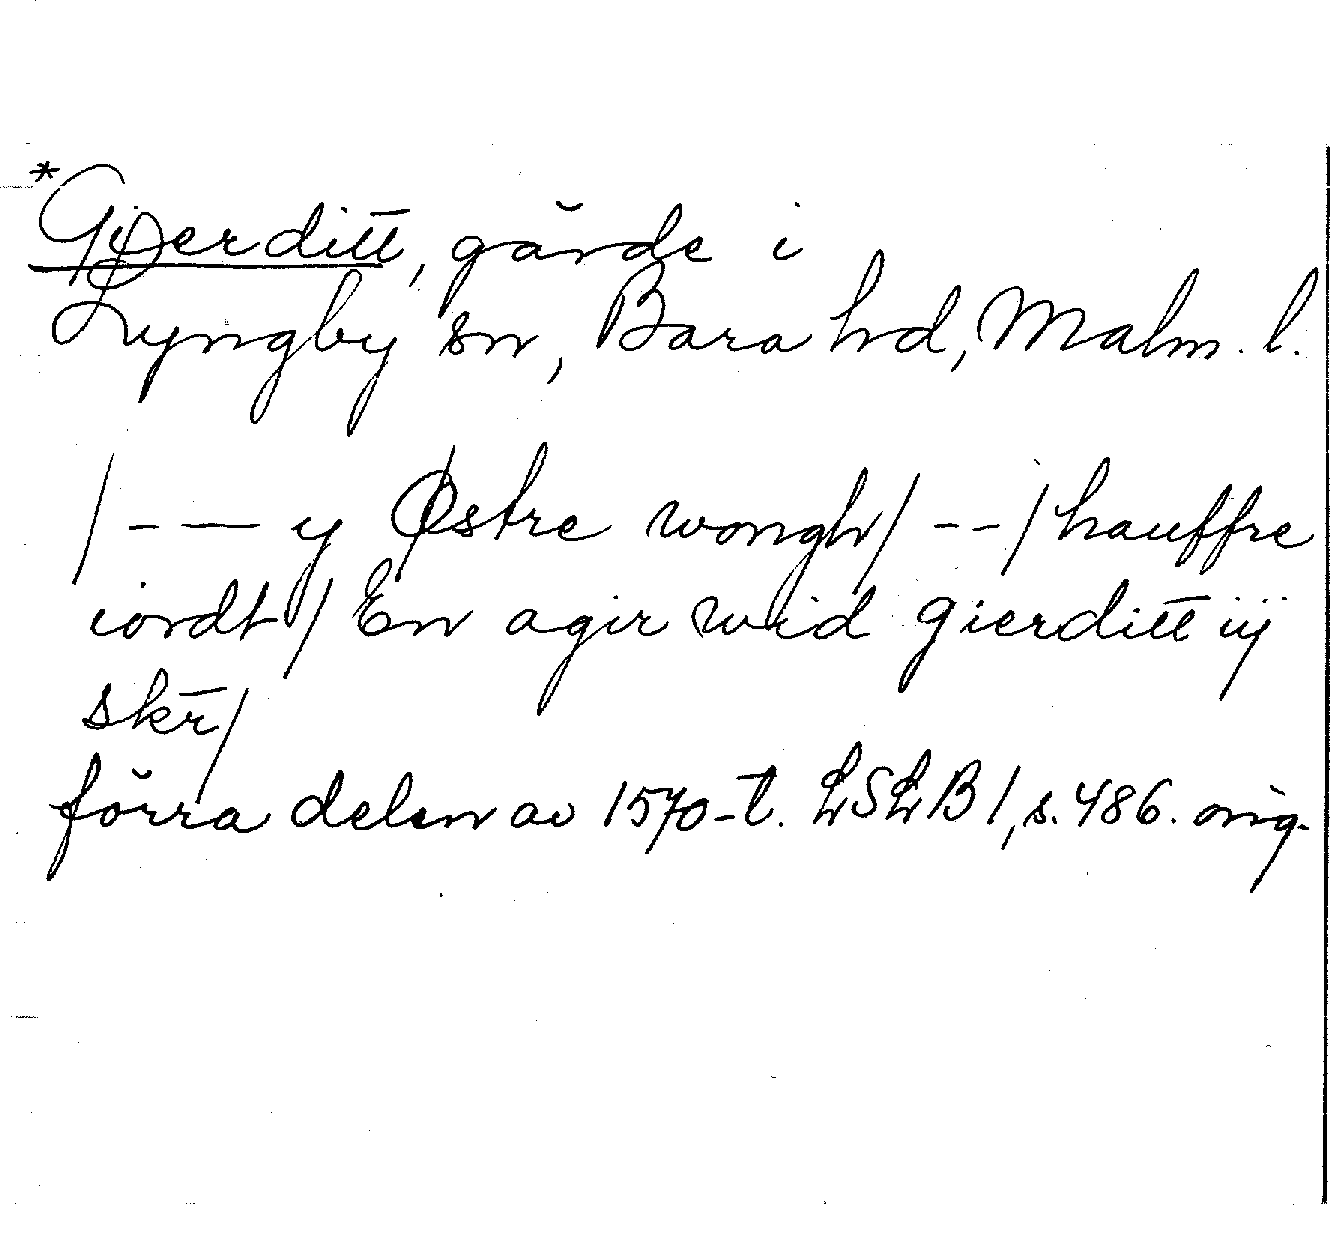 *Gierditt, gärde i
Lyngby sn, Bara hd, Malm. l.
/- — y Østre wongh/ - -/hauffre
iordt/ En agir wid gierditt iij
skr̄/
förra delen av 1570-t. LSLB 1, s. 486. orig.